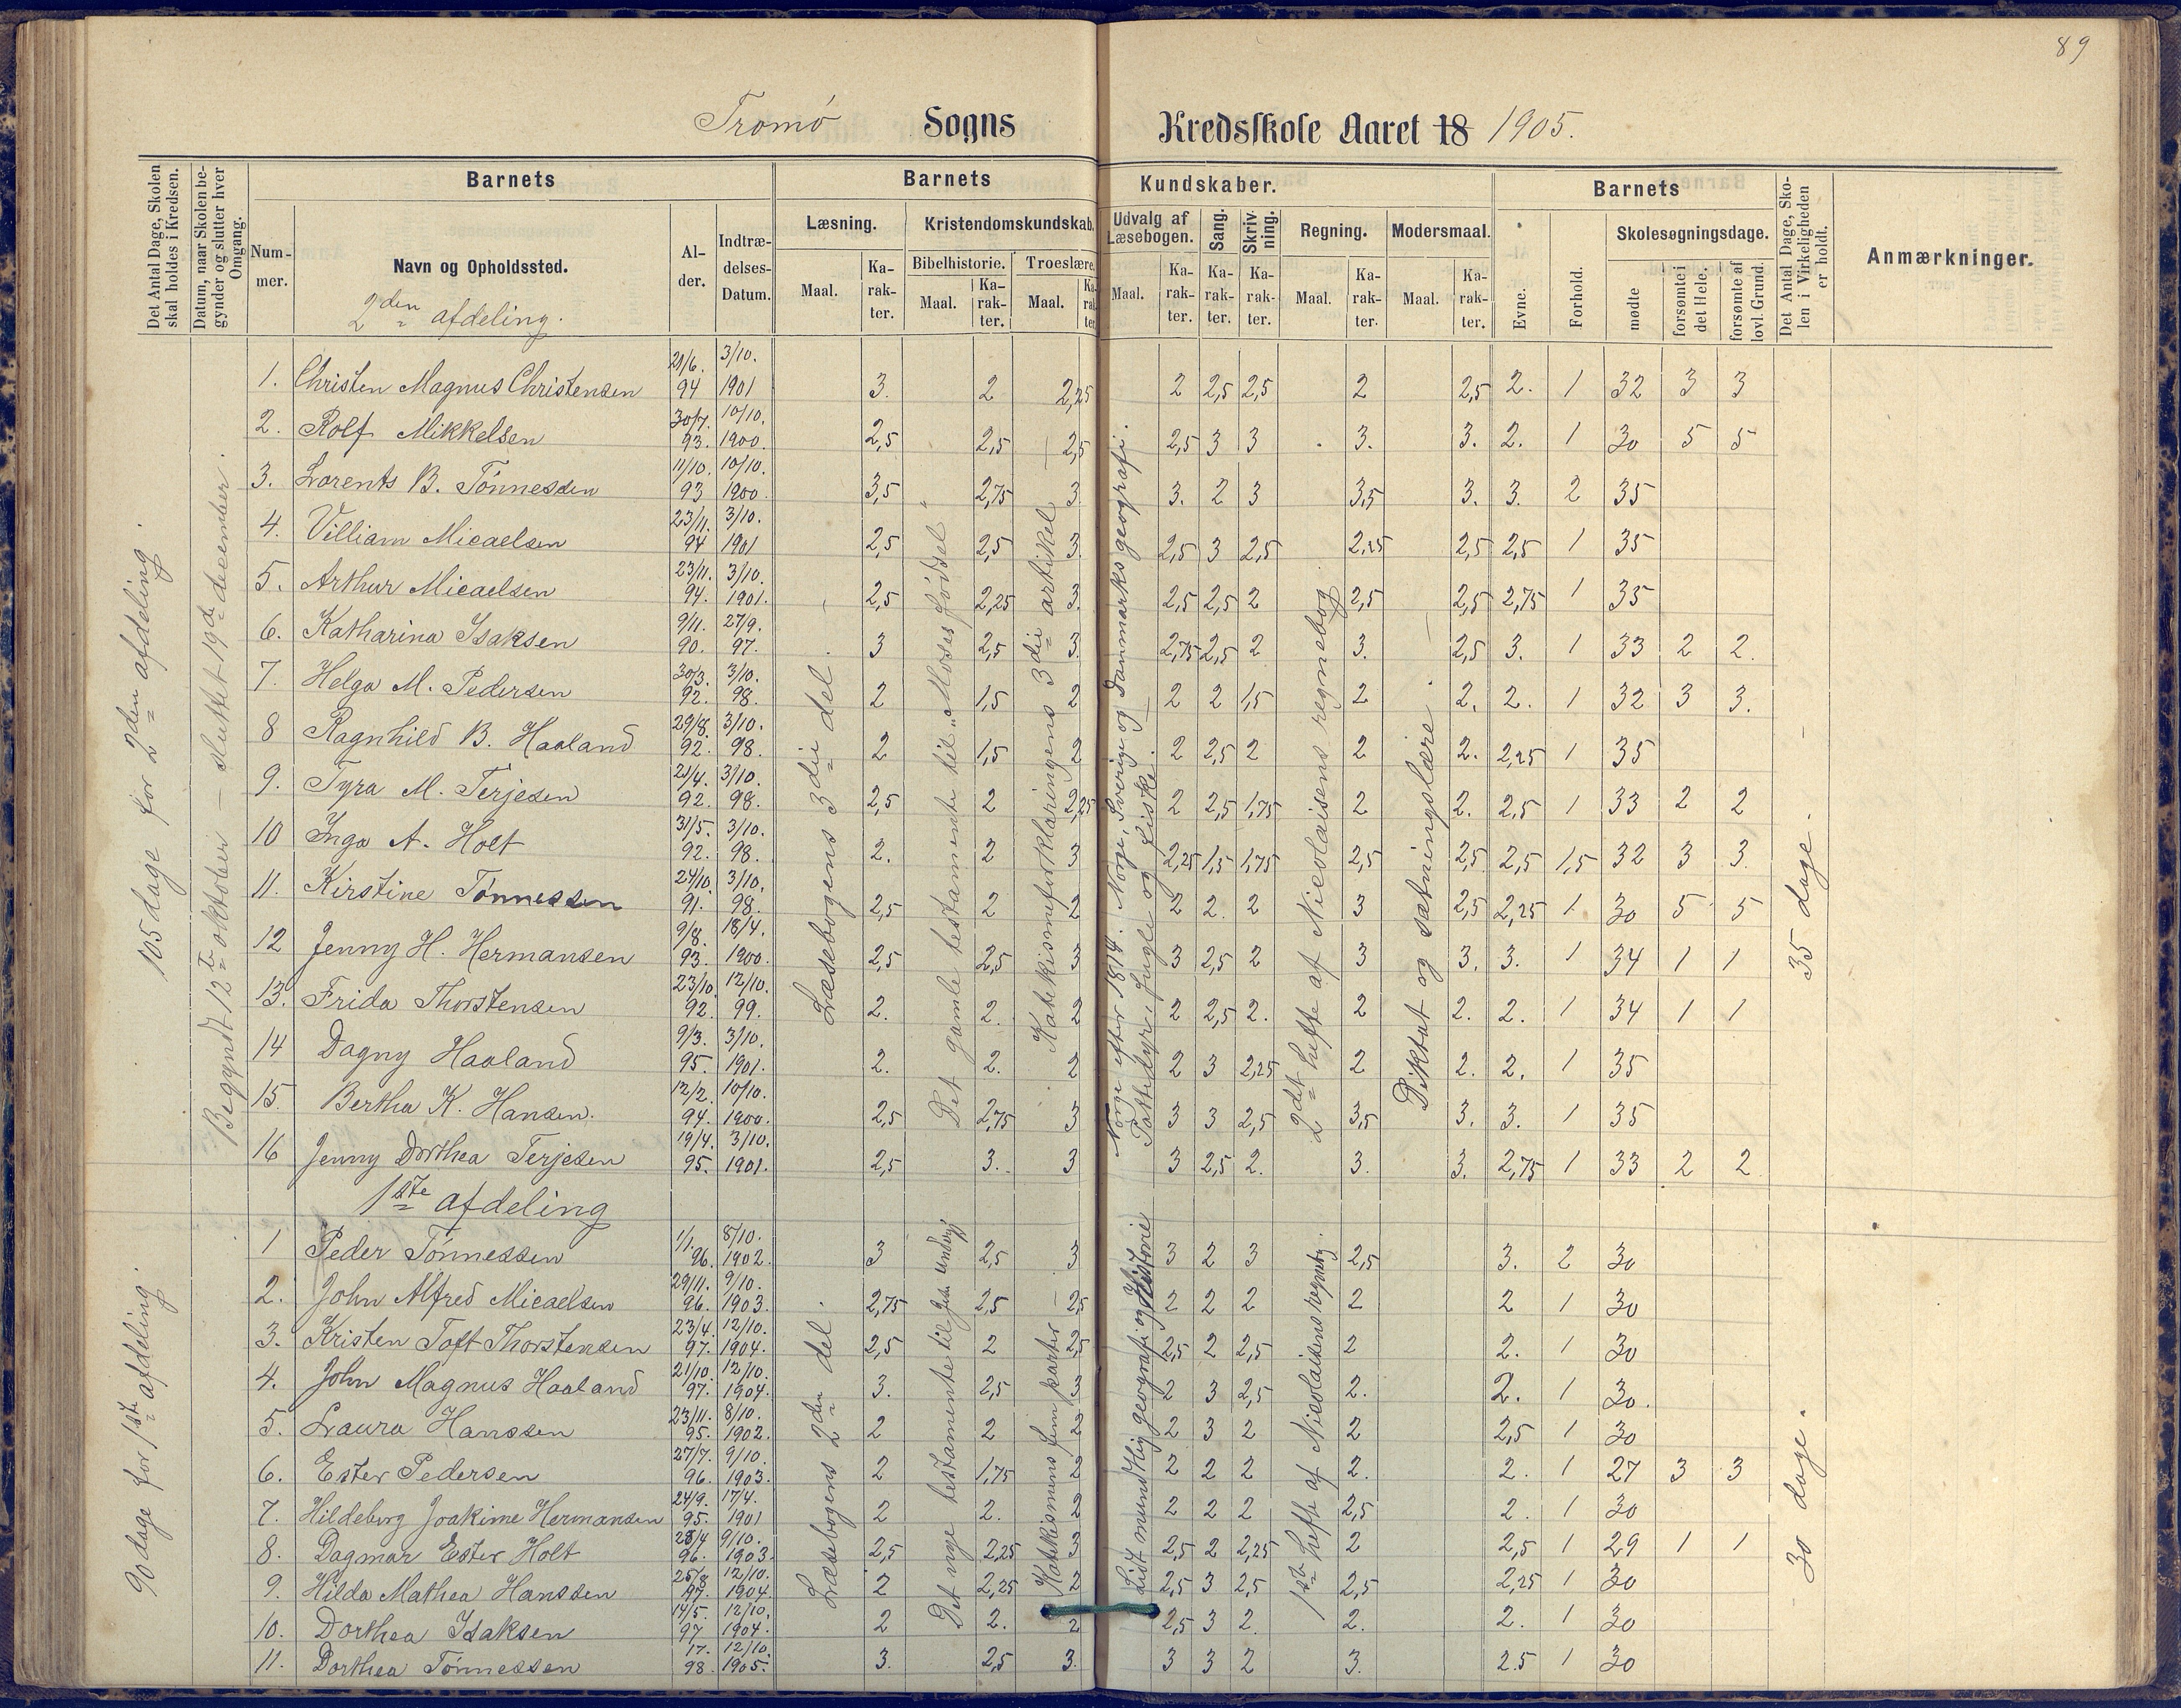 89
Tromø Sogns Kredsskole Aaret 18 1905.
Det Antal Dage, Skolen skal holdes i Kredsen.
Datum, naar Skolen begynder og slutter hver Omgang.
Barnets
Nummer.
Navn og Opholdssted.
Alder.
Indtrædelses-Datum.
Barnets Kundskaber.
Læsning.
Maal.
Karakter.
Kristendomskundskab.
Bibelhistorie.
Maal.
Karakter.
Troeslære.
Maal.
Karakter.
Udvalg af Læsebogen.
Maal.
Karakter.
Sang.
Karakter.
Skrivning.
Karakter.
Regning.
Maal.
Karakter.
Modersmaal.
Maal.
Karakter.
Barnets
Evne.
Forhold.
Skolesøgningsdage.
mødte
forsømte i det Hele.
forsømte af lovl. Grund.
Det Antal Dage, Skolen i Virkeligheden er holdt.
Anmærkninger.
2den afdeling.
105 dage for 2den afdeling.
Begyndt 12te oktober – sluttet 19de december.
Læsebogens 3die del
Det gamle testamente til „Moses fødsel"
Katekismeforklaringens 3die artikel
Norge efter 1814. Norge, Sverige og Danmarks geografi.
Pattedyr, fugle og fiske.
2det hefte af Nicolaisens regnebog
Diktat og sætningslære.
35 dage.
1. Christen Magnus Christensen 21/6. 94 3/10. 1901 3. 2 2,25 2 2,5 2,5 2 2,5 2. 1 32 3 3
2. Rolf Mikkelsen 30/7. 93. 10/10. 1900. 2,5 2,5 2,5 2,5 3 3 3. 3. 2. 1 30 5 5
3. Lorents B. Tønnessen 11/10. 93 10/10. 1900. 3,5 2,75 3 3. 2 3 3,5 3. 3. 2 35
4. Villiam Micaelsen 23/11. 94 3/10. 1901 2,5 2,5 3. 2,5 3 2,5 2,25 2,5 2,5 1 35
5. Arthur Micaelsen 23/11. 94. 3/10. 1901. 2,5 2,25 3. 2,5 2,5 2 2,5 2,5 2,75 1 35
6. Katharina Isaksen 9/11. 90. 27/9. 97. 3 2,5 3. 2,75 2,5 2 3. 2,5 3. 1 33 2 2.
7. Helga M. Pedersen 30/3. 92. 3/10. 98. 2 1,5 2 2 2 1,5 2 2. 2. 1 32 3 3.
8 Ragnhild B. Haaland 29/8. 92. 3/10. 98. 2 1,5 2 2 2,5 2 2 2. 2,25 1 35
9. Tyra M. Terjesen 21/4. 92. 3/10. 98. 2,5 2 2,25 2 2,5 1,75 2 2. 2,5 1 33 2 2
10 Inga A. Holt 31/5. 92. 3/10. 98. 2. 2 3 2,25 1,5 1,75 2,5 2,5 2,5 1,5 32 3 3.
11. Kirstine Tønnessen 24/10. 91. 3/10. 98. 2,5 2 2 2 2. 2 3 2,5 2,25 1 30 5 5
12 Jenny H. Hermansen 9/8. 93. 18/4. 1900. 2,5 2,5 3 3 2,5 2 3 3. 3. 1 34 1 1
13. Frida Thorstensen 23/10. 92. 12/10. 99. 2. 2. 2 2 2,5 2. 2 2. 2. 1 34 1 1
14 Dagny Haaland 9/3. 95. 3/10. 1901. 2. 2. 2 2 3 2,25 2 2. 2. 1 35
15. Bertha K. Hansen. 12/2. 94. 10/10. 1900. 2,5 2,75 3 3 3 2,5 3,5 3. 3. 1 35
16 Jenny Dorthea Terjesen 19/4. 95. 3/10. 1901. 2,5 3. 3 3 2,5 2. 3. 3. 2,75 1 33 2 2
1ste afdeling
90 dage for 1ste afdeling.
Læsebogens 2den del
Det nye testamente til
Katekismens fem parter
Lidt mundtlig geografi og Historie
1ste hefte af Nicolaisens regnebg.
30 dage.
1 Peder Tønnessen 1/1. 96. 8/10. 1902. 3 2,5 3 3 2 3 2,5 3. 2 30
2. John Alfred Micaelsen 29/11. 96. 9/10. 1903. 2,75 2,5 2,5 2 2 2 2 2 1 30
3. Kristen Toft Thorstensen 23/4. 97. 12/10. 1904. 2,5 2 2,5 2,5 2 2,5 2 2. 1 30
4. John Magnus Haaland 21/10. 97. 12/10. 1904. 3. 2,5 3 2 3 2,5 2. 2. 1 30.
5. Laura Hanssen 23/11. 95. 8/10. 1902. 2 2 2 2 3 2 2 2,5 1 30
6. Ester Pedersen 27/7. 96. 9/10. 1903. 2 1,75 2 2 2 2 2. 2. 1 27 3 3
7. Hildeborg Joakime Hermansen 24/9. 95. 17/4. 1901 2 2. 2 2 2 2 2,5 2. 1 30
8. Dagmar Ester Holt 28/4 96. 9/10. 1903. 2,5 2,25 3 2,5 2 2,25 2 2,5 1 29 1 1
9. Hilda Mathea Hanssen 25/8 97. 12/10. 1904. 2 2,25 2 2,5 3 2,5 2,5 2,25 1 30
10. Dorthea Isaksen 14/5. 97 12/10. 1904. 2 2. 2 2,5 3 2. 2. 2. 1 30
11. Dorthea Tønnessen 17. 98. 12/10. 1905. 3. 2,5 3. 3 3 2 3. 2.5 1 30